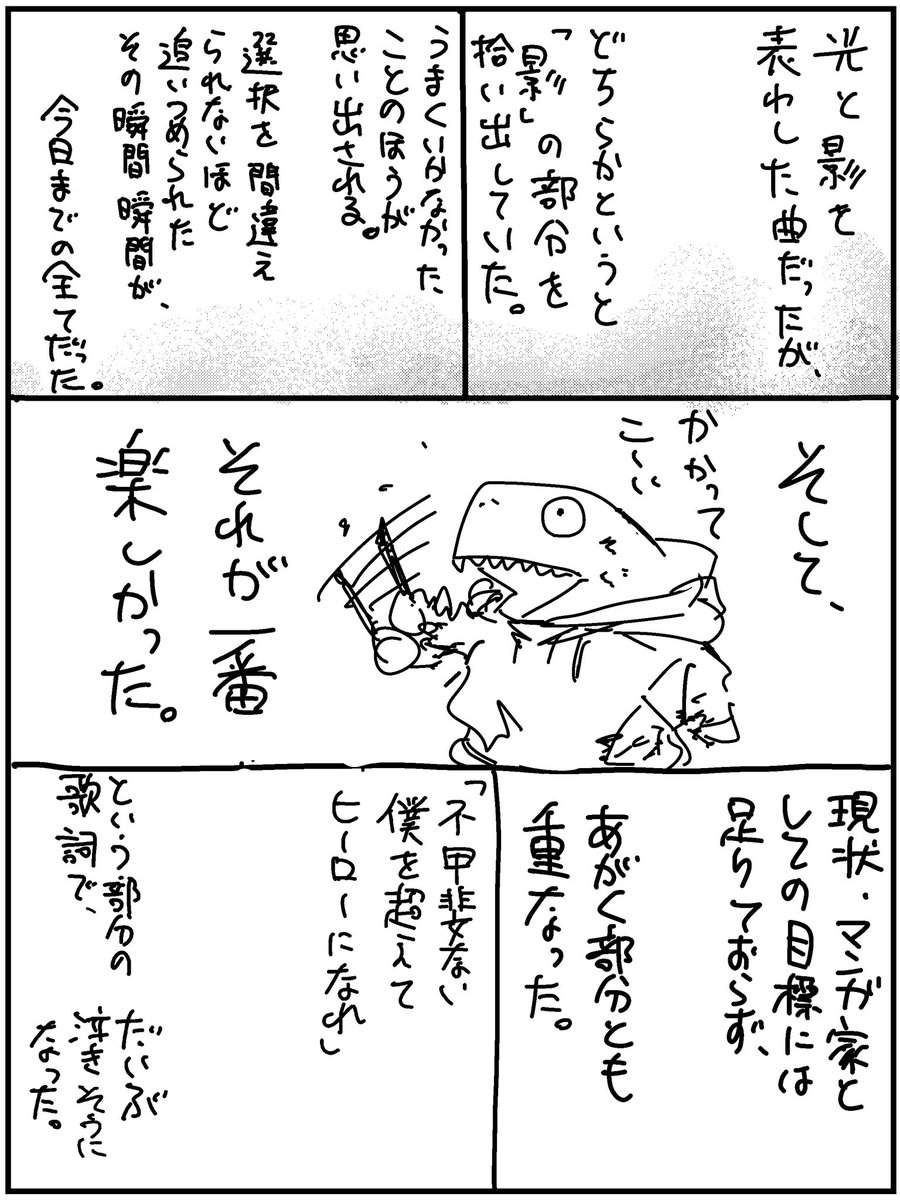 光と影を
表わした曲だったが、
どちらかというと
「影」の部分を
拾い出していた。
うまくいかなかった
ことのほうが
思い出される。
選択を間違え
られないほど
追いつめられた
その瞬間瞬間が、
今日までの全てだった。
そして、
かかって
こ〜い
それが一番
楽しかった。
現状・マンガ家と
しての目標には
足りておらず、
あがく部分とも
重なった。
「不甲斐ない
僕を超えて
ヒーローになれ」
という部分の
歌詞で、
だいぶ
泣きそうに
なった。